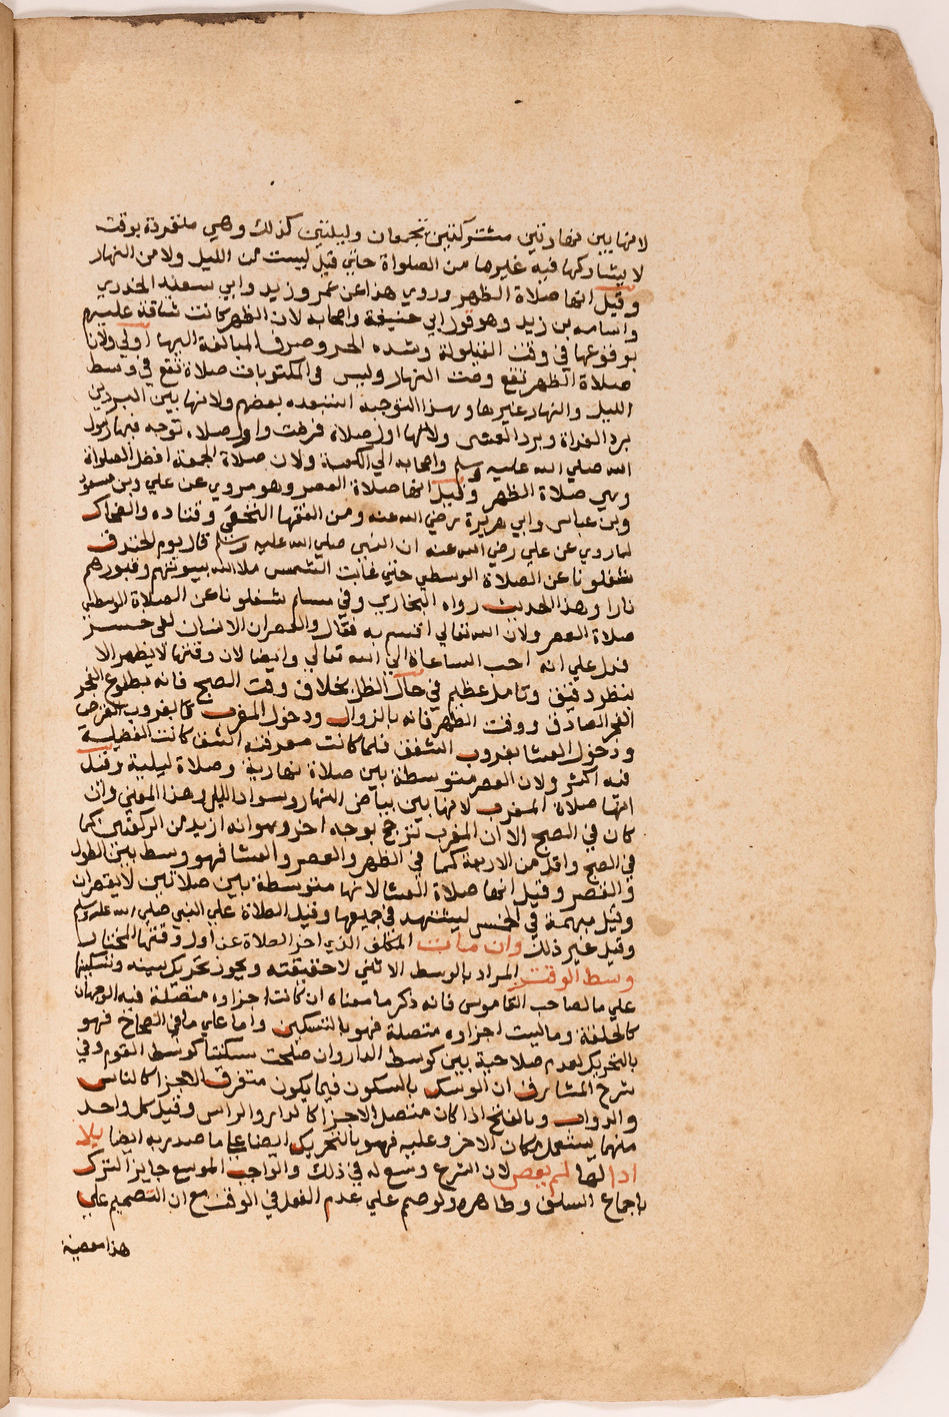 لانها بين نهارتين مشتركتين تجمعان وليلتين كذلك وهي منفردة بوقت
لا يشاركها فيه غيرها من الصلواة حتي قيل ليست من الليل ولا من النهار
وقيل انها صلاة الظهر وروي هذا عن عمر وزيد وابي سعيد الخدري
واسامه بن زيد وهو قول ابي حنيفة واصحابه لان الظهر كانت شاقة عليهم
بوقوعها في وقت القيلولة وشده الحر وصرف المبالغة اليها اولي ولان
صلاة الظهر تقع وسط النهار وليس في المكتوبات صلاة تقع في وسط
الليل والنهار غيرها وبهذا التوجيه استبعده بعضهم ولانها بين البردين
برد الغداة وبرد العشي ولانها اول صلاة فرضت واول صلاه توجه فيها رسول
الله صلي الله عليه وسلم واصحابه الي الكعبة ولان صلاة الجمعة افضل الصلواة
وهي صلاة الظهر وقيل انها صلاة العصر وهو مروي عن علي وبن مسعود
وبن عباس وابي هريرة رضي الله عنه ومن الفقها النخعي وقتاده والضحاك
لما روي عن علي رضي الله عنه ان النبي صلي الله عليه وسلم قال يوم الخندق
شغلونا عن الصلاة الوسطي حتي غابت الشمس ملا الله بيوتهم وقبورهم
نارا وهذا الحديث رواه البخاري وفي مسلم شغلونا عن الصلاة الوسطي
صلاة العصر ولان الله تعالي اقسم به فقال والعصر ان الانسان لفي خسر
فدل علي انه احب الساعاة الي الله تعالي وايضا لان وقتها لا يظهر الا
بنظر دقيق وتامل عظيم في حال الظل بخلاف وقت الصبح فانه بطلوع الفجر
الفجر الصادق ووقت الظهر فانه بالزوال ودخول المغرب كا بغروب القرص
ودخول العشا بغروب الشفق فلما كانت معرفته اشق كانت الفضيلة
فيه اكثر ولان العصر متوسطة بين صلاة نهارية وصلاة ليلية وقيل
انها صلاة المغرب لانها بين بياض النهار وسواد الليل وهذا المعني وان
كان في الصبح الا ان المغرب ترجح بوجه اخر وهو انه ازيد من الركعتين كما
في الصبح واقل من الاربعة كما في الظهر والعصر والعشا فهو وسط بين الطول
والقصر وقيل انها صلاة العشا لانها متوسطة بين صلاتين لا يقصران
وقيل مبهمة في الخمس ليجتهد في جميعها وقيل الصلاة علي النبي صلي الله عليه وسلم
وقيل غير ذلك وان مات المكلف الذي اخر الصلاة عن اول وقتها المختار
وسط الوقت المراد بالوسط الاثني لا حقيقته ويجوز تحريك سينه وتسكينها
علي ما لصاحب القاموس فانه ذكر ما معناه ان كانت اجزاوه متصلة فيه الوجهان
كالحلقة وما ليست اجزاوه متصلة فهو بالتسكين واما علي ما في الصحاح فهو
بالتحريك لعدم صلاحية بين كوسط الدار وان صلحت سكنتا كوسط القوم وفي
شرح المشارق ان الوسط بالسكون فيما يكون متفرق الاجزا كالناس
والدواب وبالفتح اذا كان متصل الاجزا كالدار والراس وقيل كل واحد
منهما يستعمل مكان الاخر وعليه فهو بالتحريك ايضا علي ما صدر به ايضا بلا
ادا لها لم يعص لان الشرع وسع له في ذلك والواجب الموسع جايز الترك
باجماع السلف وظاهره ولو صمم علي عدم الفعل في الوقت مع ان التصميم علي
هذا معصية